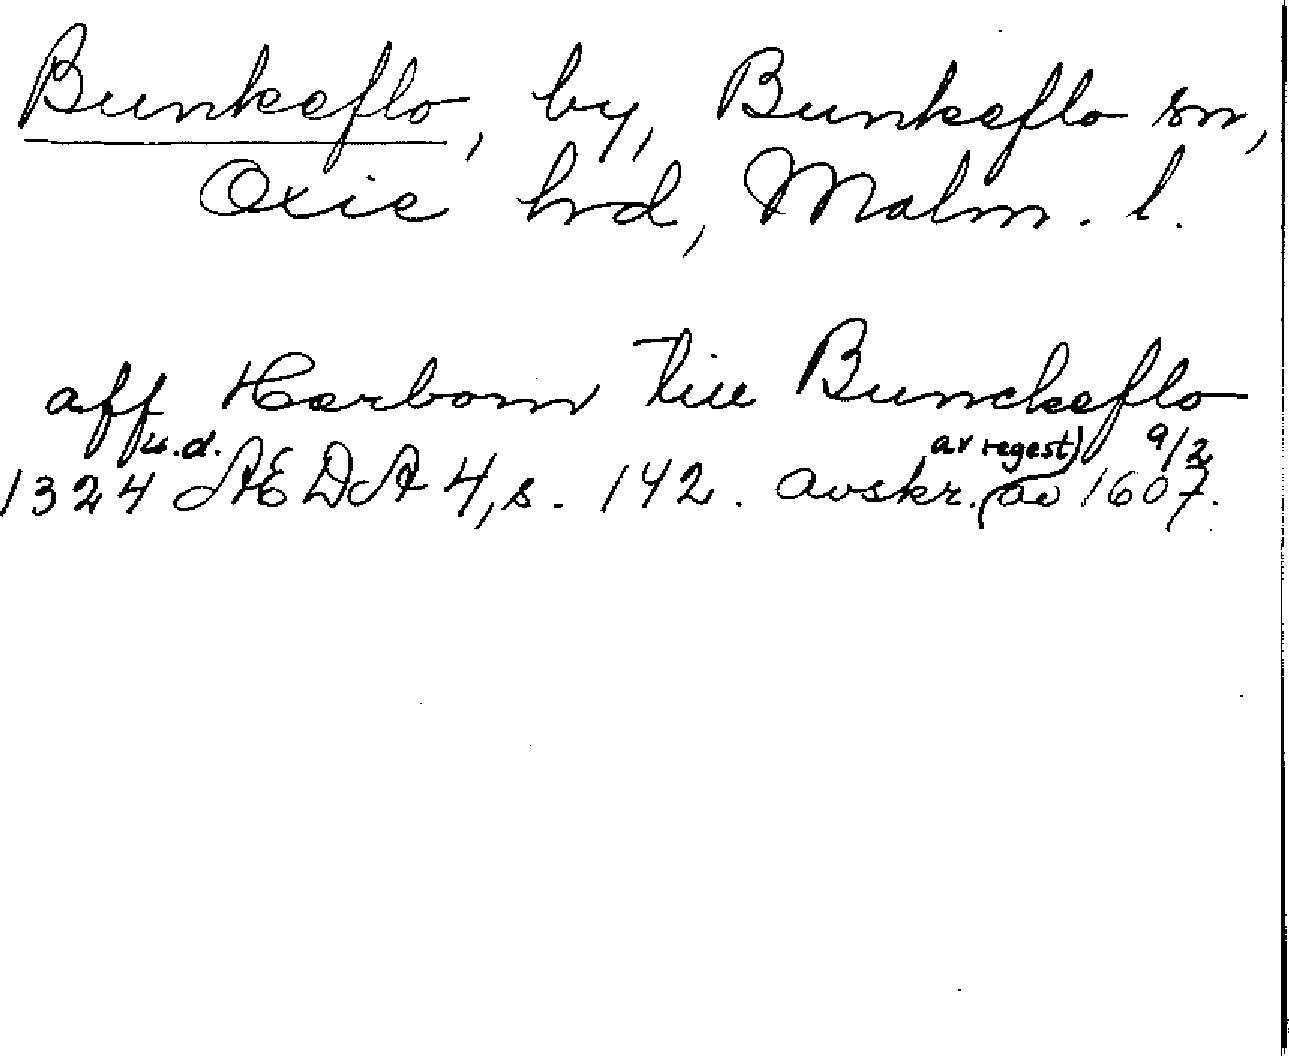 Bunkeflo, by, Bunkeflo sn,
Oxie hrd, Malm. l.
aff Harbom till Bunckeflo
u.d. av regest) 9/2
1324 ÆDA 4, s. 142. avskr. (av 1607.